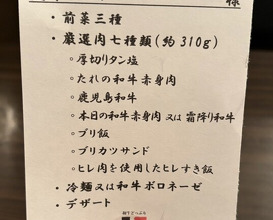 様
・前菜三種
・厳選肉七種類(約310g)
○厚切りタン塩
○たれの和牛赤身肉
○鹿児島和牛
○本日の和牛赤身肉又は霜降り和牛
○ブリ飯
○ブリカツサンド
○ヒレ肉を使用したヒレすき飯
・冷麺又は和牛ボロネーゼ
・デザート